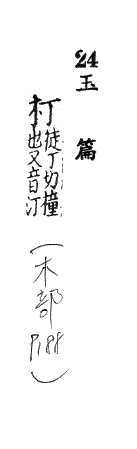 24
玉篇
朾徒丁切撞
也又音汀
(木部
P188)